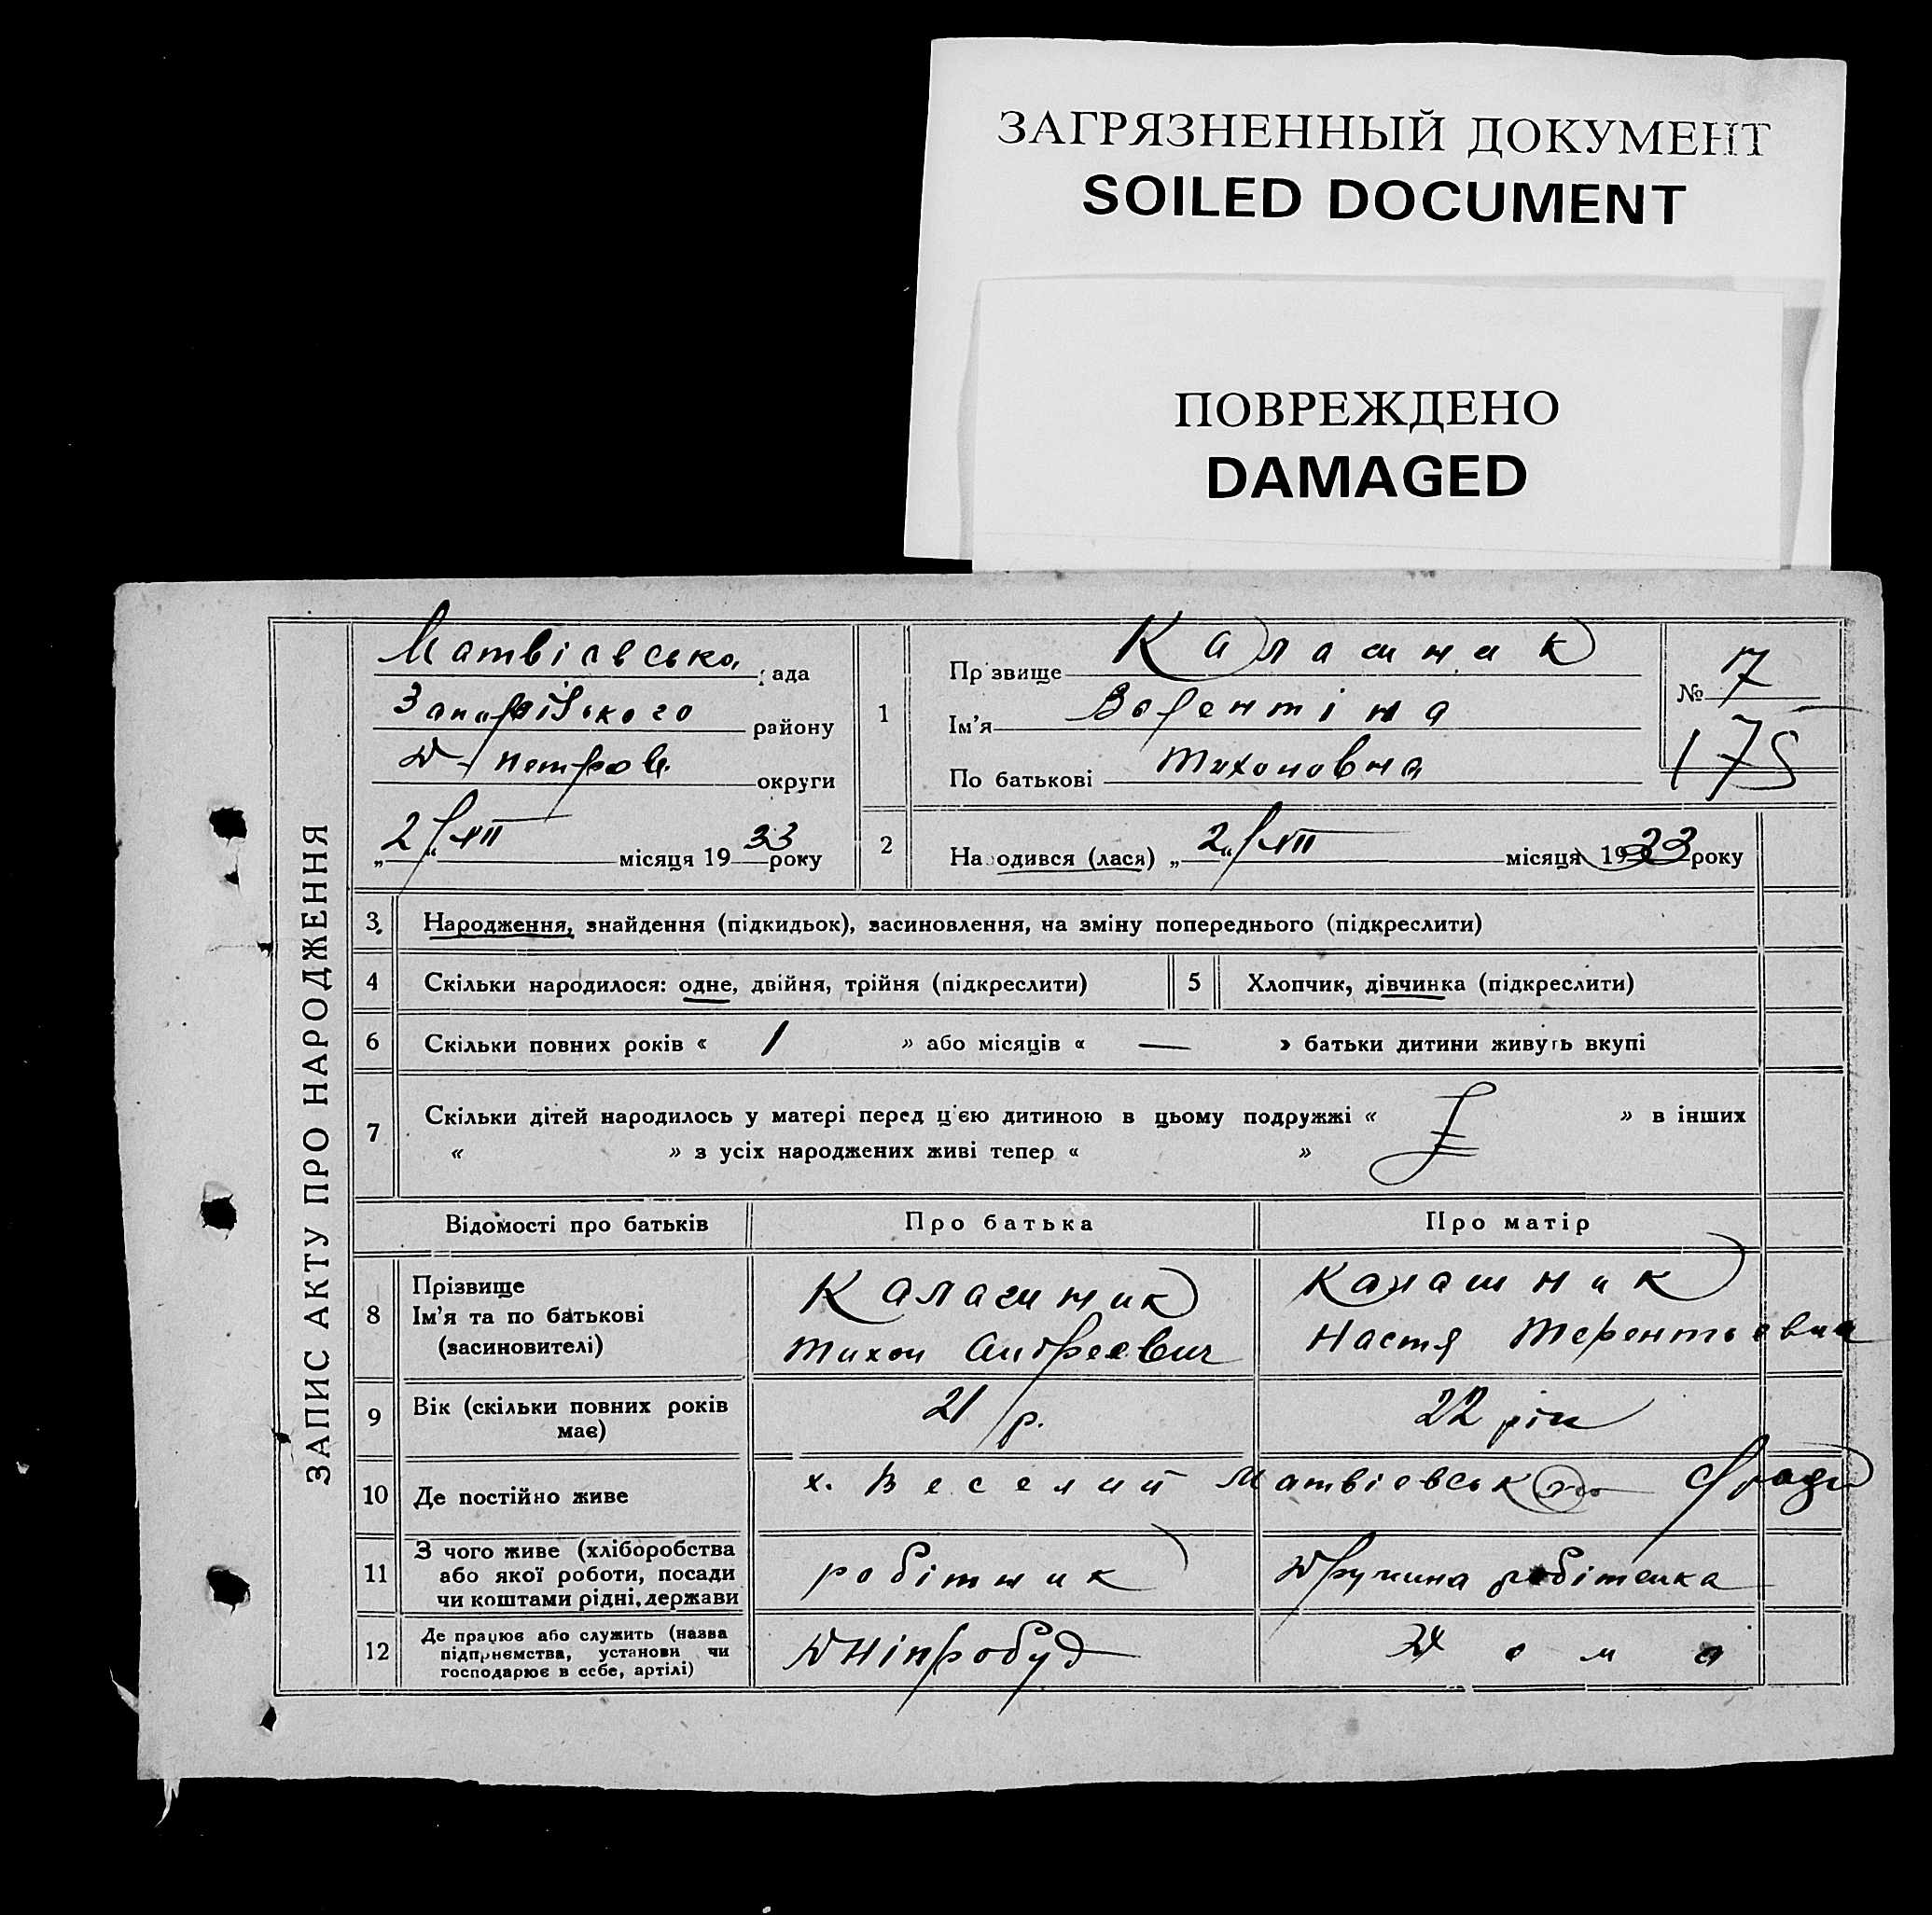 ЗАГРЯЗНЕННЫЙ ДОКУМЕНТ
SOILED DOCUMENT
ПОВРЕЖДЕНО
DAMAGED
ЗАПИС АКТУ ПРО НАРОДЖЕННЯ
Матвієвська рада
Запорізького району
Д-петров. округи
„2“ XII місяця 1933 року
1
Прізвище Калашник
Ім'я Валентіна
По батькові Тихоновна
№ 17
175
2 Народився (лася) „2“ XII місяця 1933 року
3 Народження, знайдення (підкидьок), засиновлення, на зміну попереднього (підкреслити)
4 Скільки народилося: одне, двійня, трійня (підкреслити)
5 Хлопчик, дівчинка (підкреслити)
6 Скільки повних років « 1 » або місяців « — » батьки дитини живуть вкупі
7 Скільки дітей народилось у матері перед цією дитиною в цьому подружжі « » в інших
« » з усіх народжених живі тепер « »
Відомості про батьків Про батька Про матір
8 Прізвище
Ім'я та по батькові
(засиновителі)
Калашник
Тихон Андреевич
Калашник
Настя Терентьевна
9 Вік (скільки повних років
має)
21 р.
22 рік
10 Де постійно живе х. Веселий Матвієвськ ради
11 З чого живе (хліборобства
або якої роботи, посади
чи коштами рідні, держави
робітник
Дружина робітника
12 Де працює або служить (назва
підприємства, установи чи
господарює в себе, артілі)
Дніпробуд
Дома